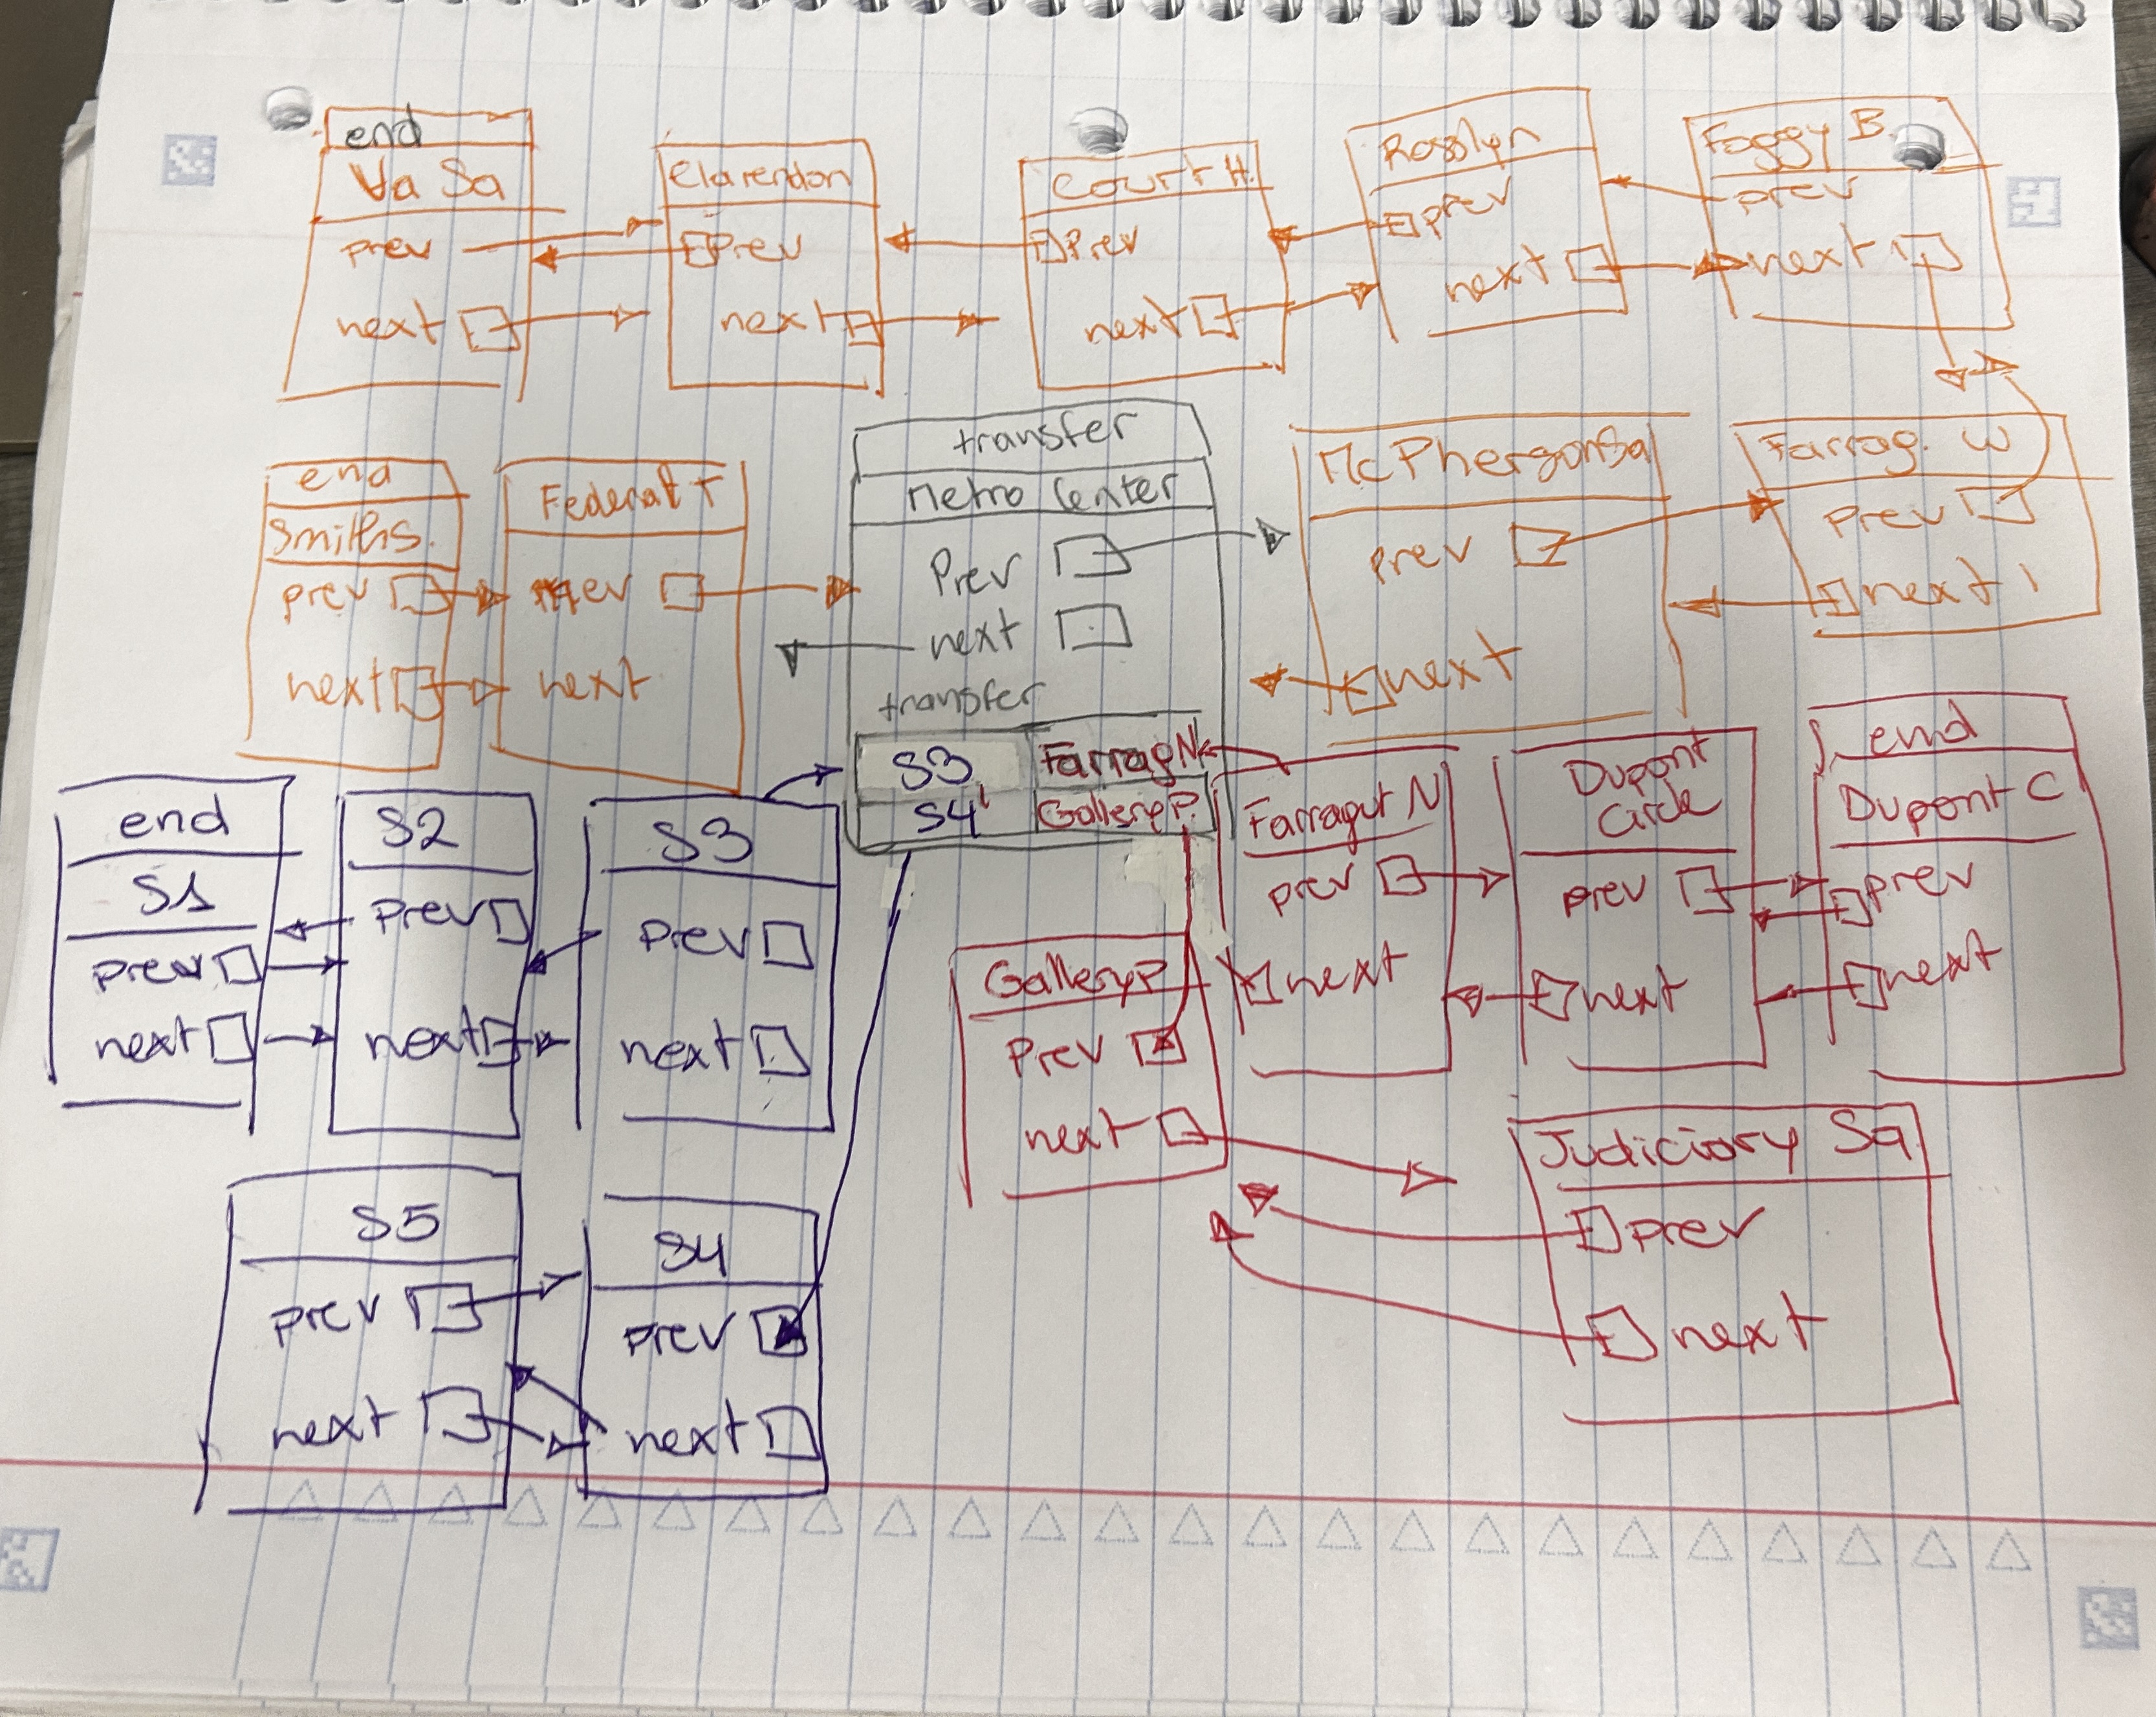 end
Va Sq
prev
next
Clarendon
Prev
next
Court H.
Prev
next
Rosslyn
prev
next
Foggy B.
prev
next
end
Smiths.
prev
next
Federal T
prev
next
transfer
Metro Center
Prev
next
transfer
S3 Farrag N
S4 Gallery P.
McPhergonSq
prev
next
Farrag. W
prev
next
end
S1
prev
next
S2
prev
next
S3
prev
next
Farragut N
prev
next
Dupont
Circle
prev
next
end
Dupont C
prev
next
Gallery P
Prev
next
Judiciory Sq
prev
next
S5
prev
next
S4
prev
next